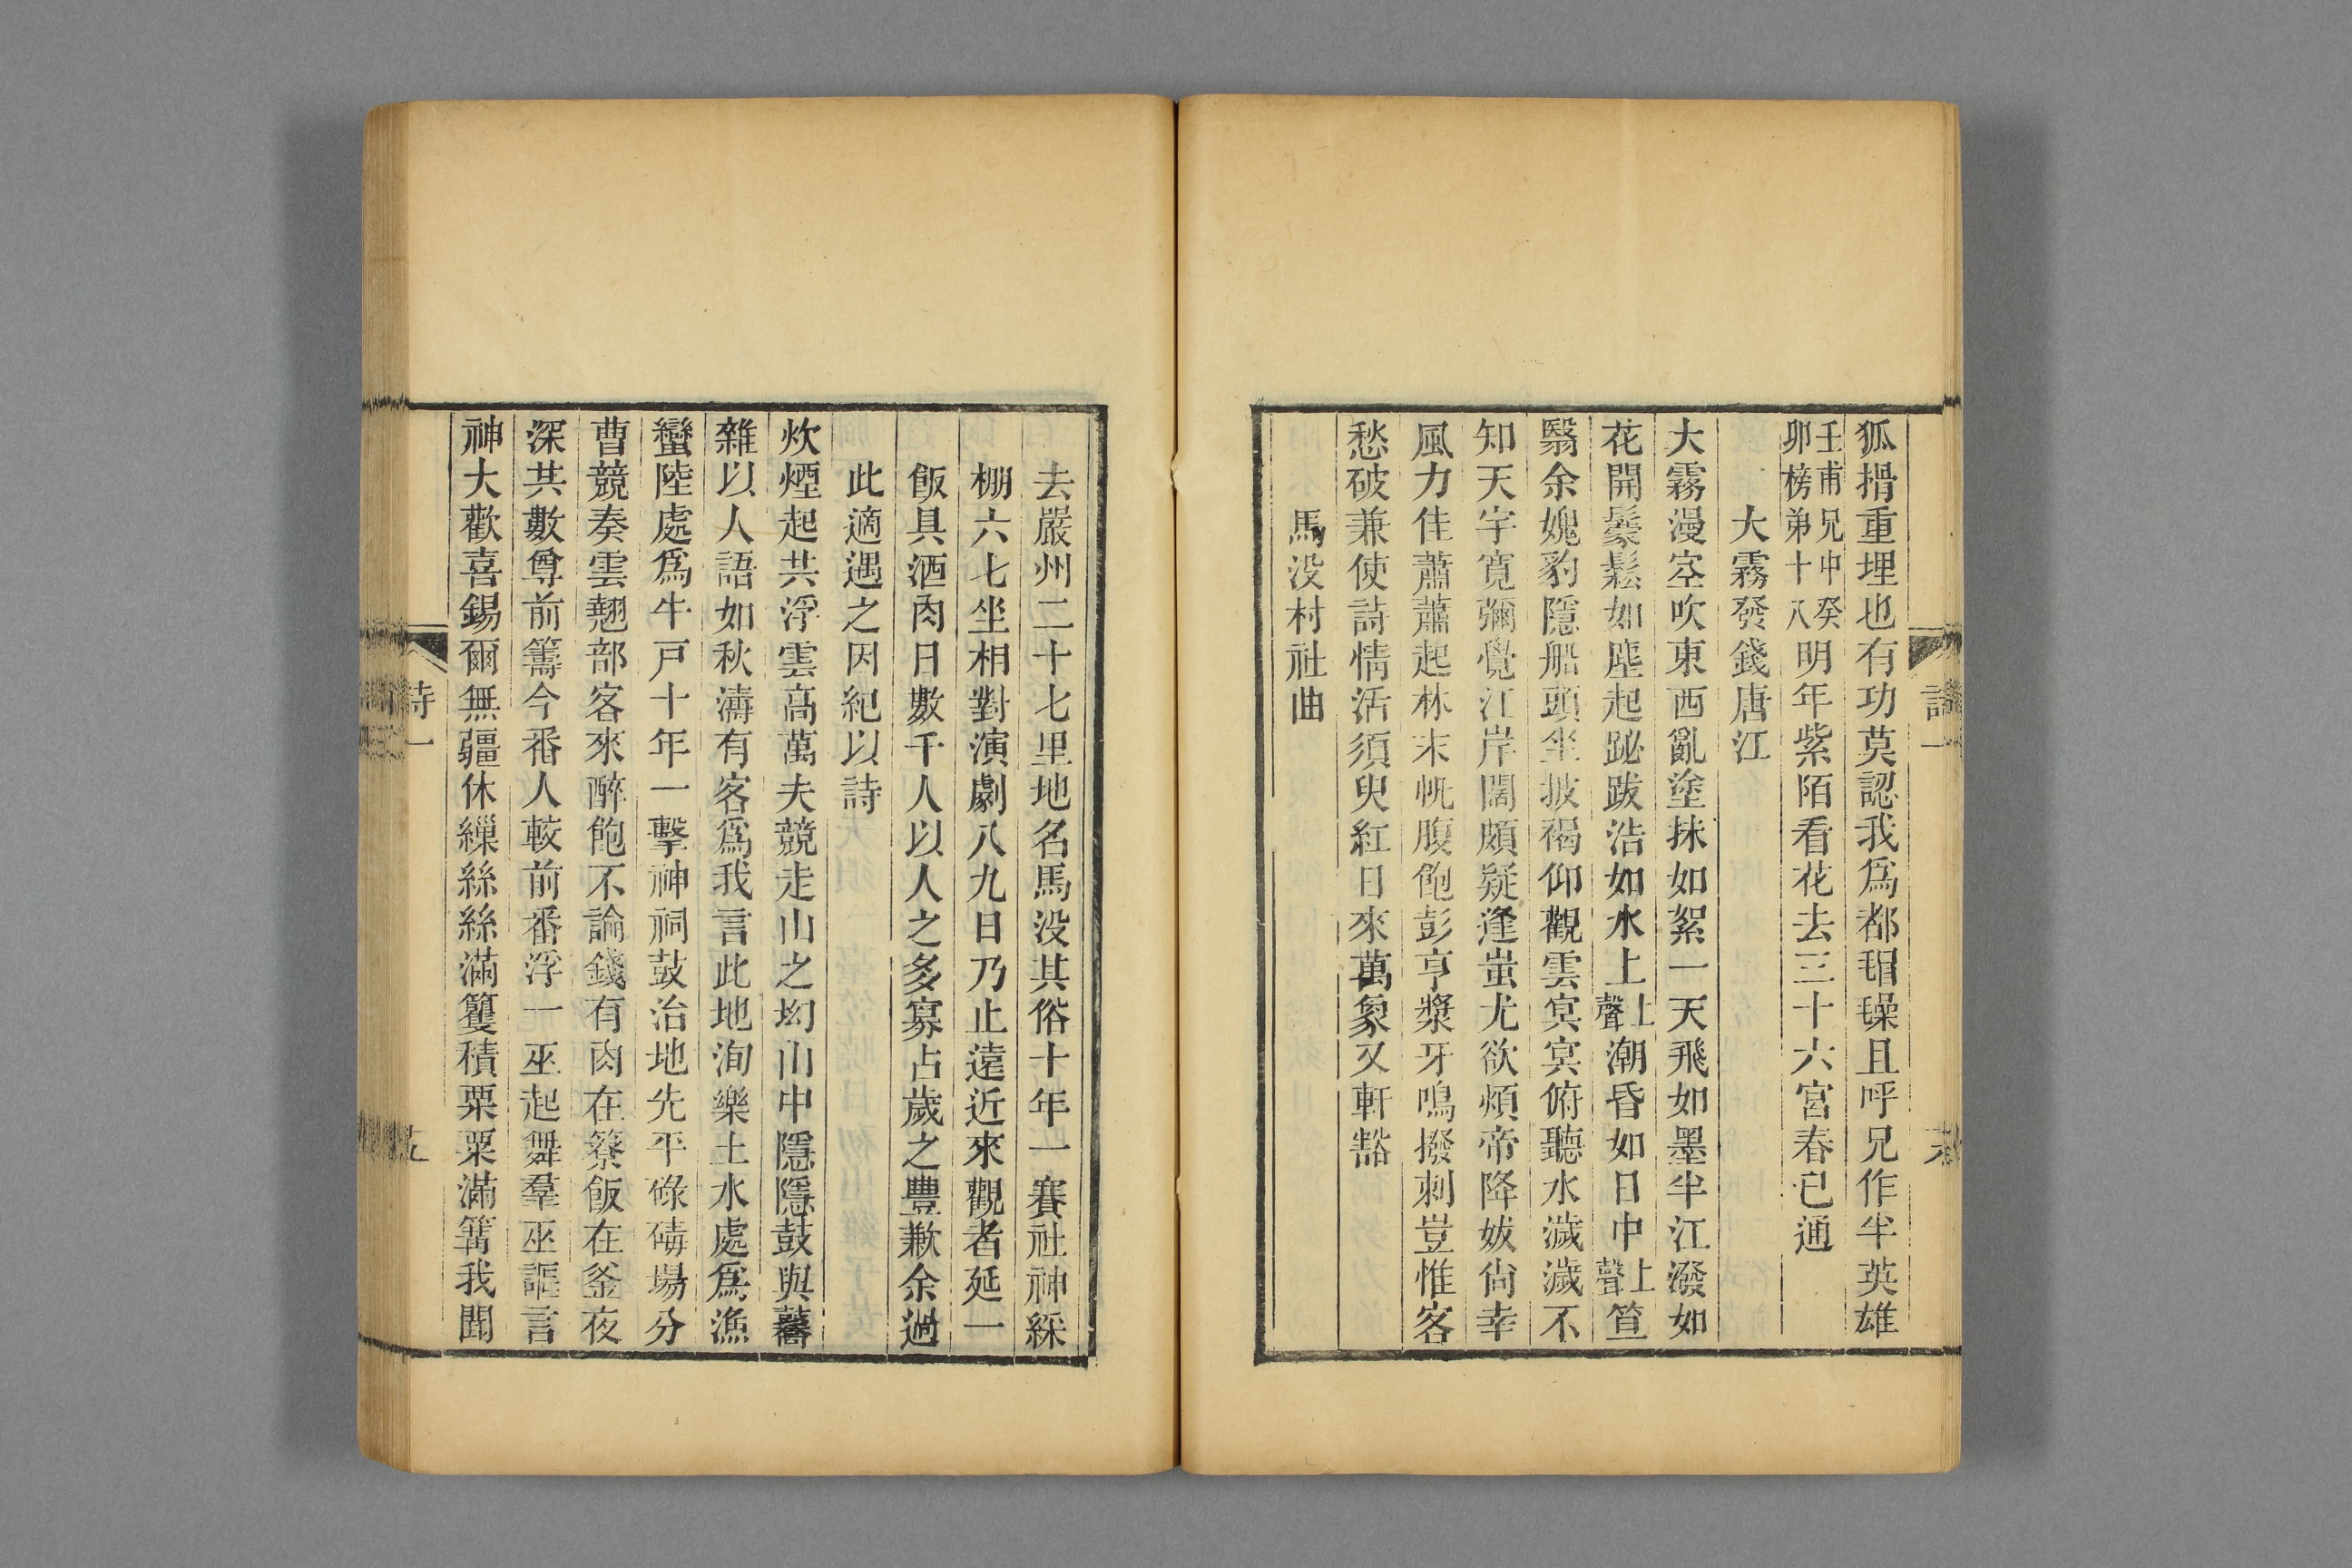 狐搰重埋也有功莫認我爲都瑁璪且呼兄作半英雄
壬甫兄中癸
卯榜弟十八
明年紫陌看花去三十六宮春已通
大霧發錢唐江
大霧漫空吹東西亂塗抹如絮一天飛如墨半江潑如
花開鬖鬆如塵起跐跋浩如水上上聲潮昏如日中上聲笪
翳余媿豹隱船頭坐披褐仰觀雲㝠㝠俯聽水濊濊不
知天宇寛彌覺江岸闊頗疑逢蚩尤欲煩帝降妭尙幸
風力佳蕭蕭起林末帆腹飽彭亨槳牙鳴撥刺豈惟客
愁破兼使詩情活須臾紅日來萬象又軒豁
馬没村社曲
詩一
去嚴州二十七里地名馬没其俗十年一賽社神綵
棚六七坐相對演劇八九日乃止遠近來觀者延一
飯具酒肉日數千人以人之多寡占歲之豐歉余過
此適遇之因紀以詩
炊煙起共浮雲高萬夫競走山之坳山中隱隱鼓與鼛
雜以人語如秋濤有客爲我言此地洵樂土水處爲漁
蠻陸處爲牛戸十年一擊神祠鼓治地先平碌碡場分
曹競奏雲翹部客來醉飽不論錢有肉在簝飯在釜夜
深共數尊前籌今番人較前番浮一巫起舞羣巫謳言
神大歡喜錫爾無疆休繅絲絲滿籰積粟粟滿篝我聞
詩一